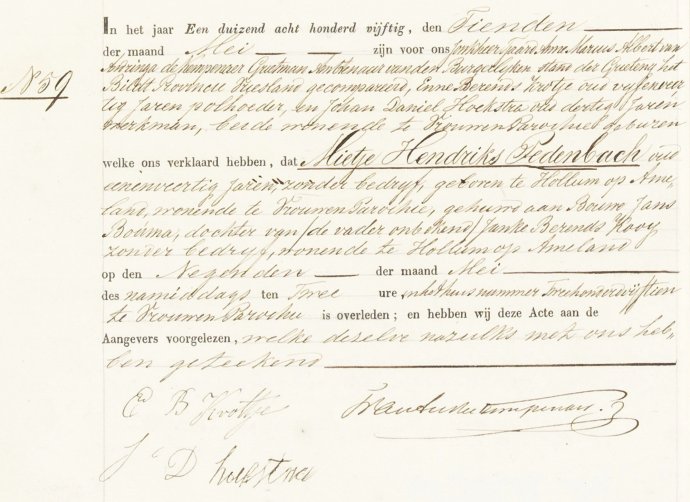 In het jaar Een duizend acht honderd vijftig, den Tienden
der maand Mei zijn voor ons Jonkheer Tjaard Anne Marius Albert van
Andringa de Kempenaer Grietman Ambtenaar van den Burgelijken stand der Grietenij het
No 59
Bildt Provincie Vriesland gecompareerd, Enne Berends Krotje oud vijfenveer
tig Jaren polhoeder, en Johan Daniel Hoekstra oud dertig Jaren
werkman, beide wonende te Vrouwen Parochie geburen
welke ons verklaard hebben, dat Mietje Hendriks Fedenbach oud
eenenveertig Jaren, zonder bedryf, geboren te Hollum op Ame-
land, wonende te Vrouwen Parochie, gehuwd aan Bouwe Jans
Bouma, dochter van de vader onbekend Janke Berends Kooy,
zonder bedryf, wonende te Hollum op Ameland
op den Negenden der maand Mei
des namiddags ten Twee ure, in het huis nummer Tweehonderdvijftien
te Vrouwen Parochie is overleden; en hebben wij deze Acte aan de
Aangevers voorgelezen, welke dezelve nazulks met ons heb-
ben geteekend
E B Krotje
J D hoekstra